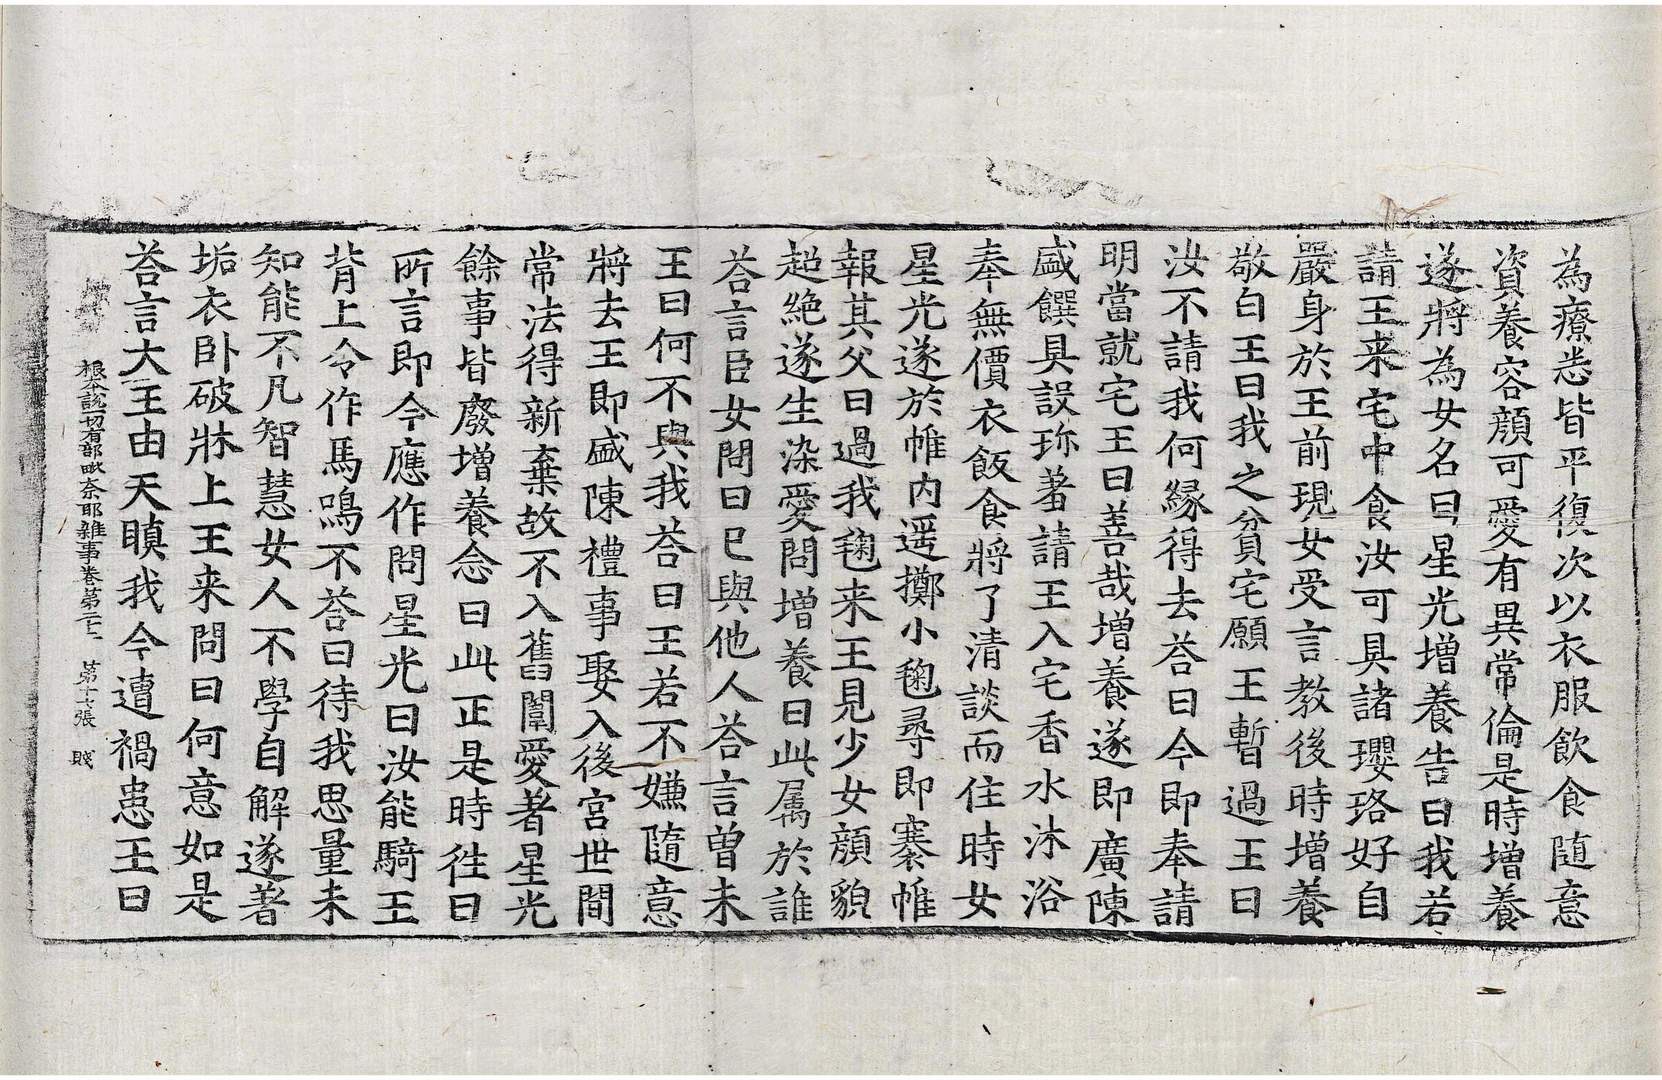 為療恙皆平復次以衣服飲食随意
資養容顔可愛有異常倫是時增養
遂將為女名曰星光增養告曰我若
請王来宅中食汝可具諸瓔珞好自
嚴身於王前現女受言教後時增養
敬白王曰我之貧宅願王暫過王曰
汝不請我何緣得去荅曰今即奉請
明當就宅王曰善哉增養遂即廣陳
盛饌具設珎羞請王入宅香水沐浴
奉無價衣飯食將了清談而住時女
星光遂於帷内遥擲小毱尋即褰帷
報其父曰過我毱来王見少女顔貌
超絶遂生染愛問增養曰此属於誰
荅言臣女問曰已與他人荅言曾未
王曰何不與我荅曰王若不嫌隨意
將去王即盛陳禮事娶入後宮世間
常法得新棄故不入舊闈愛著星光
餘事皆廢增養念曰此正是時徃曰
所言即今應作問星光曰汝能騎王
背上令作馬鳴不荅曰待我思量未
知能不凡智慧女人不學自解遂著
垢衣卧破牀上王来問曰何意如是
荅言大王由天瞋我今遭禍患王曰
根本說一切有部毗奈耶雜事卷第二十二 第十七張 賤